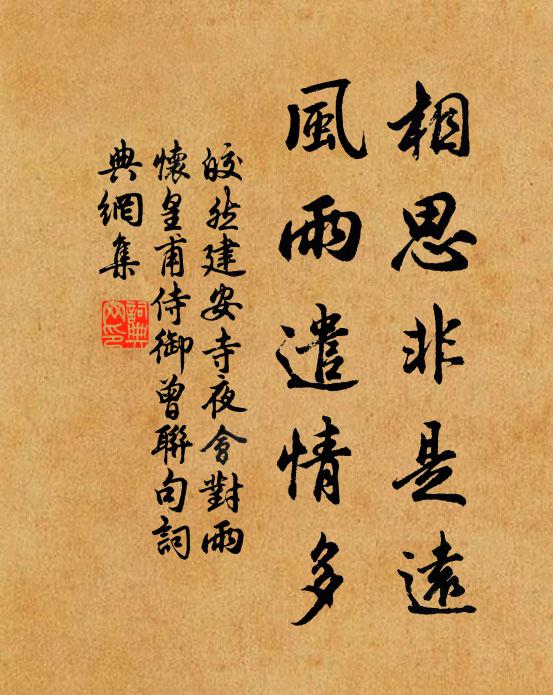 相思非是遠
風雨遣情多
皎然建安寺夜會對雨
懷皇甫侍御曾聯句詞
典網集
詞典
网印